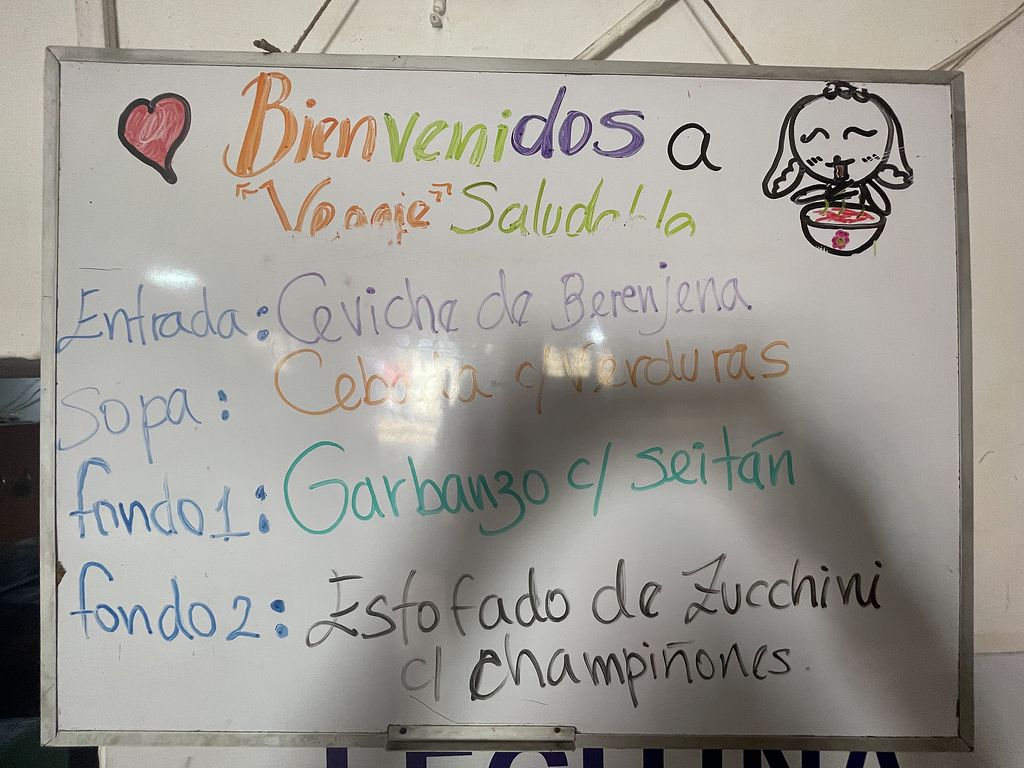 Bienvenidos a
"Veggie" Saludable
Entrada: Ceviche de Berenjena.
Sopa: Cebada c/ Verduras
fondo 1: Garbanzo c/ seitán
fondo 2: Estofado de Zucchini
c/ champiñones.